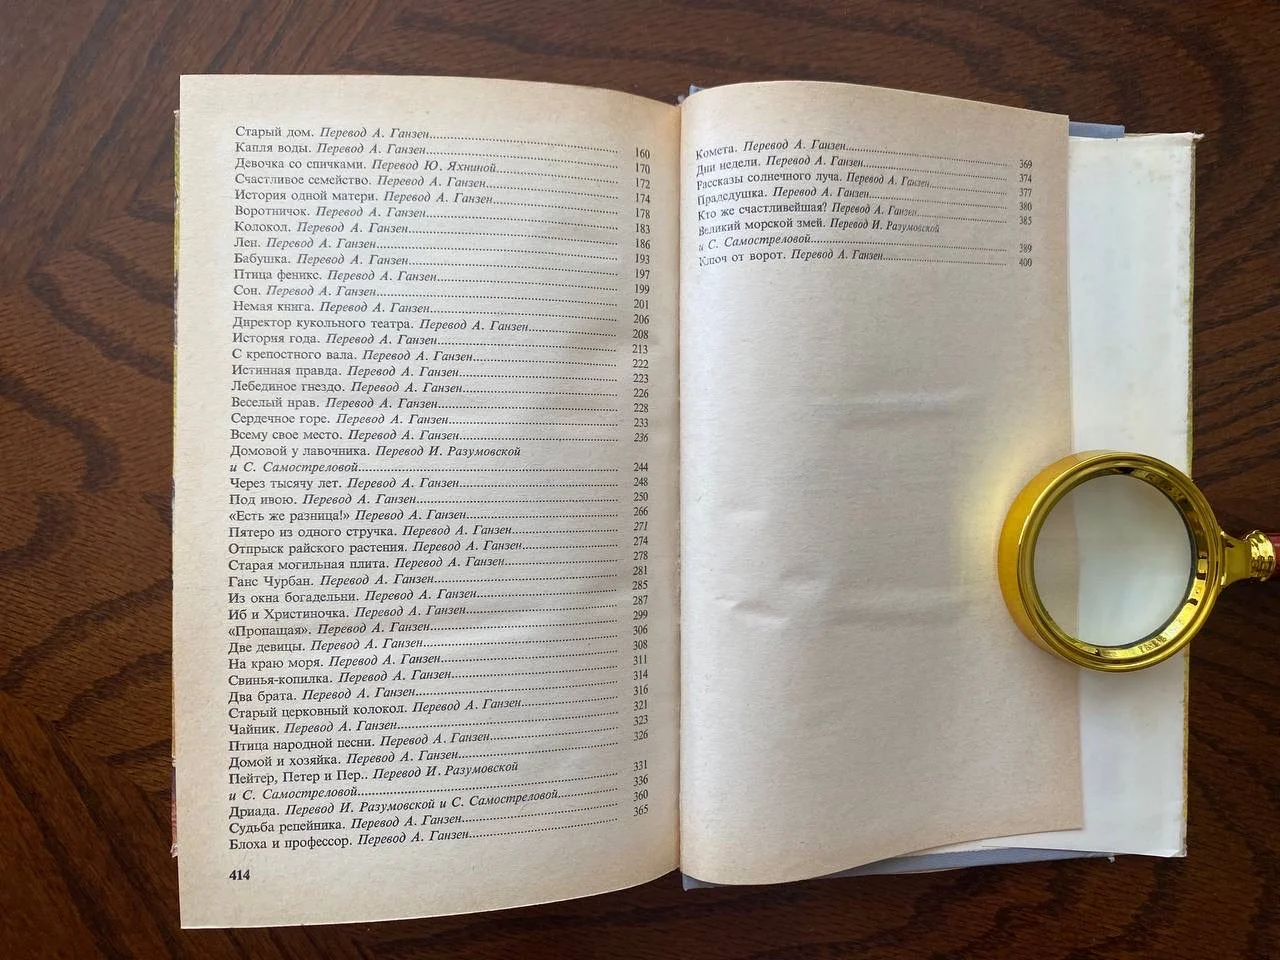 Старый дом. Перевод А. Ганзен 160
Капля воды. Перевод А. Ганзен 170
Девочка со спичками. Перевод Ю. Яхниной 172
Счастливое семейство. Перевод А. Ганзен 174
История одной матери. Перевод А. Ганзен 178
Воротничок. Перевод А. Ганзен 183
Колокол. Перевод А. Ганзен 186
Лен. Перевод А. Ганзен 193
Бабушка. Перевод А. Ганзен 197
Птица феникс. Перевод А. Ганзен 199
Сон. Перевод А. Ганзен 201
Немая книга. Перевод А. Ганзен 206
Директор кукольного театра. Перевод А. Ганзен 208
История года. Перевод А. Ганзен 213
С крепостного вала. Перевод А. Ганзен 222
Истинная правда. Перевод А. Ганзен 223
Лебединое гнездо. Перевод А. Ганзен 226
Веселый нрав. Перевод А. Ганзен 228
Сердечное горе. Перевод А. Ганзен 233
Всему свое место. Перевод А. Ганзен 236
Домовой у лавочника. Перевод И. Разумовской
и С. Самостреловой 244
Через тысячу лет. Перевод А. Ганзен 248
Под ивою. Перевод А. Ганзен 250
«Есть же разница!» Перевод А. Ганзен 266
Пятеро из одного стручка. Перевод А. Ганзен 271
Отпрыск райского растения. Перевод А. Ганзен 274
Старая могильная плита. Перевод А. Ганзен 278
Ганс Чурбан. Перевод А. Ганзен 281
Из окна богадельни. Перевод А. Ганзен 285
Иб и Христиночка. Перевод А. Ганзен 287
«Пропащая». Перевод А. Ганзен 299
Две девицы. Перевод А. Ганзен 306
На краю моря. Перевод А. Ганзен 308
Свинья-копилка. Перевод А. Ганзен 311
Два брата. Перевод А. Ганзен 314
Старый церковный колокол. Перевод А. Ганзен 316
Чайник. Перевод А. Ганзен 321
Птица народной песни. Перевод А. Ганзен 323
Домой и хозяйка. Перевод А. Ганзен 326
Пейтер, Петер и Пер.. Перевод И. Разумовской
и С. Самостреловой 331
Дриада. Перевод И. Разумовской и С. Самостреловой 336
Судьба репейника. Перевод А. Ганзен 360
Блоха и профессор. Перевод А. Ганзен 365
414
Комета. Перевод А. Ганзен 369
Дни недели. Перевод А. Ганзен 374
Рассказы солнечного луча. Перевод А. Ганзен 377
Прадедушка. Перевод А. Ганзен 380
Кто же счастливейшая? Перевод А. Ганзен 385
Великий морской змей. Перевод И. Разумовской
и С. Самостреловой 389
Ключ от ворот. Перевод А. Ганзен 400